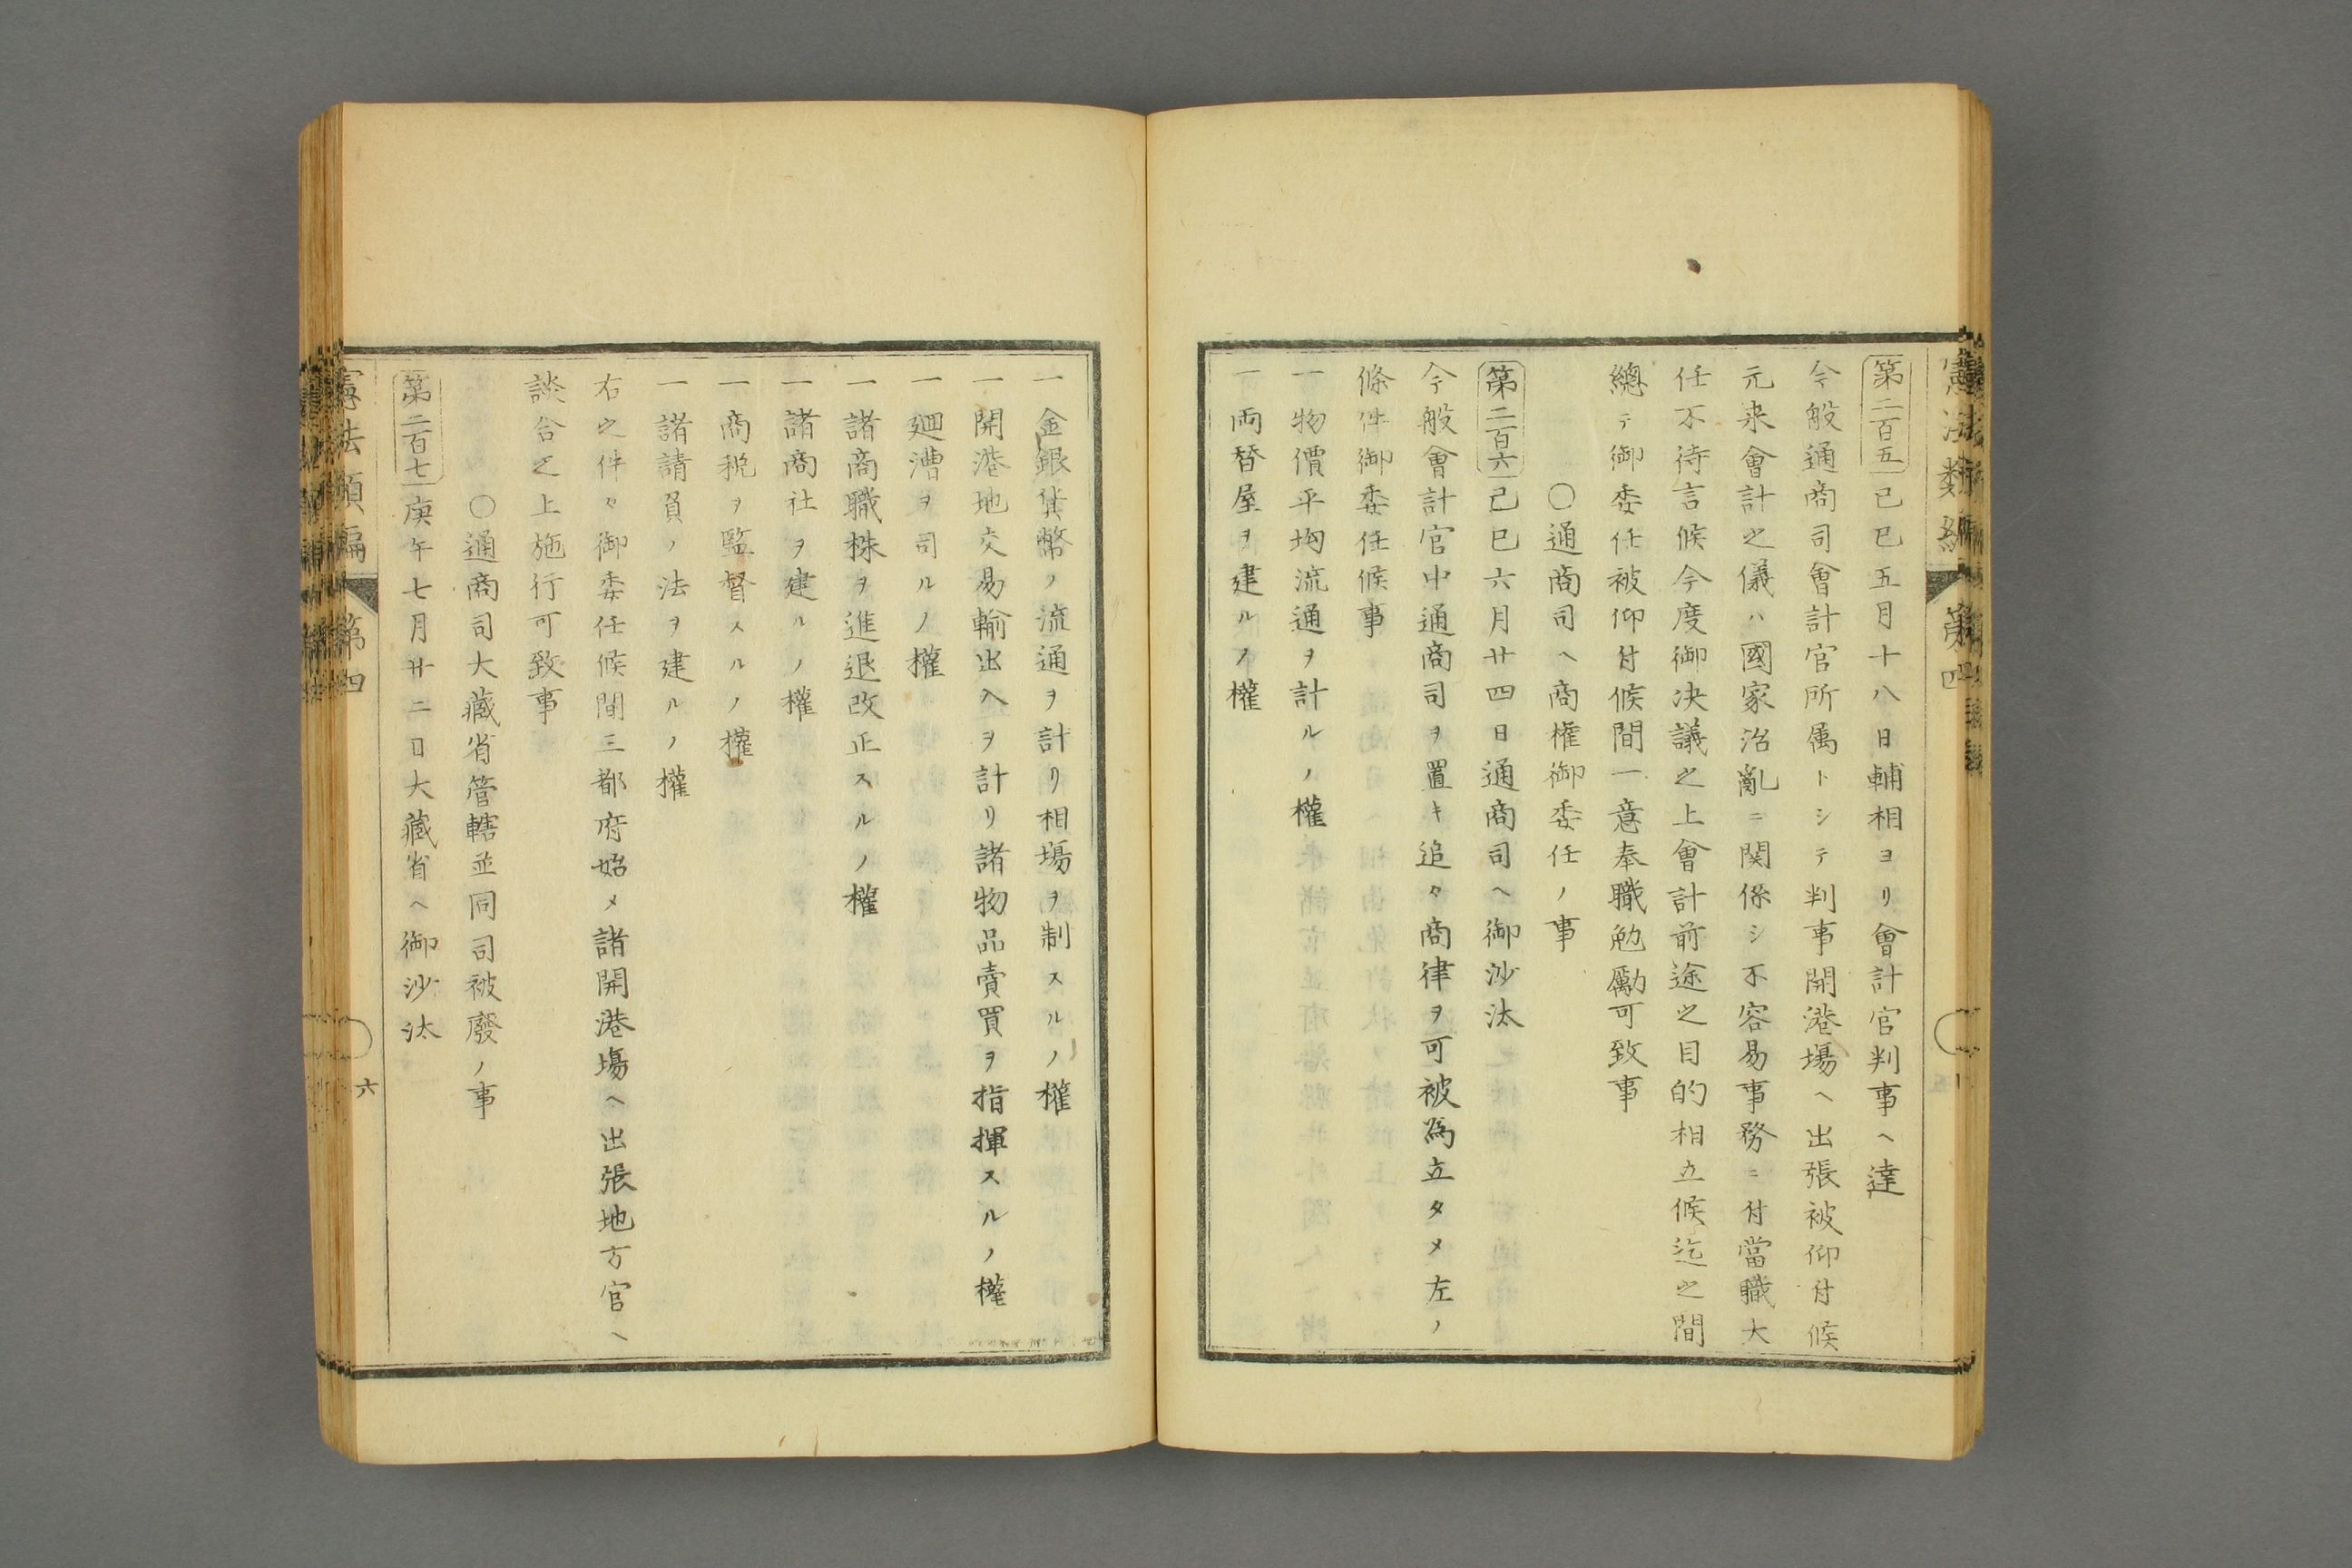 第二百五 己巳五月十八日輔相ヨリ會計官判事ヘ達
今般通商司會計官所属トシテ判事開港場ヘ出張被仰付候
元来會計之儀ハ國家治亂ニ関係シ不容易事務ニ付當職大
任不待言候今度御决議之上會計前途之目的相立候迄之間
總テ御委任被仰付候間一意奉職勉勵可致事
〇通商司ヘ商権御委任ノ事
第二百六 己巳六月廿四日通商司ヘ御沙汰
今般會計官中通商司ヲ置キ追々商律ヲ可被為立タメ左ノ
條件御委任候事
一物價平均流通ヲ計ルノ權
一両替屋ヲ建ルノ權
一金銀貨幣ノ流通ヲ計リ相場ヲ制スルノ權
一開港地交易輸出入ヲ計リ諸物品賣買ヲ指揮スルノ權
一廻漕ヲ司ルノ權
一諸商職株ヲ進退改正スルノ權
一諸商社ヲ建ルノ權
一商税ヲ監督スルノ權
一諸請負ノ法ヲ建ルノ權
右之件々御委任候間三都府始メ諸開港場ヘ出張地方官ヘ
談合之上施行可致事
〇通商司大藏省管轄並同司被廢ノ事
第二百七 庚午七月廿二日大藏省ヘ御沙汰
憲法類編 第四
六